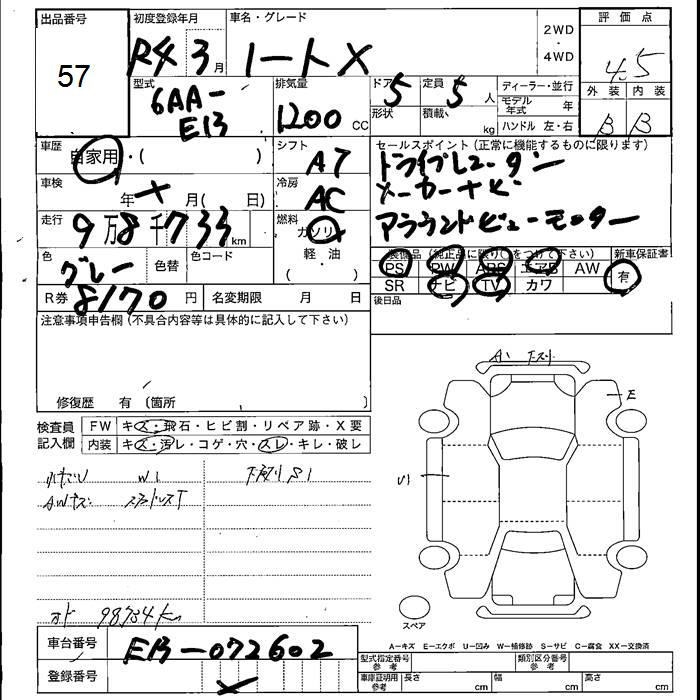 出品番号
57
初度登録年月
R4 3月
車名・グレード
ノート X
2WD
・
4WD
評価点
4.5
外装 内装
B B
型式
6AA-
E13
排気量
1200 CC
ドア 5
形状
定員 5 人
積載 kg
ディーラー・並行
モデル年式 年
ハンドル 左・右
車歴
自家用・( )
シフト
AT
セールスポイント (正常に機能するものに限ります)
ドライブレコーダー
メーカーナビ
アラウンドビューモニター
車検
年 メ 月( 日)
冷房
AC
走行
9万8千733km
燃料
ガソリン
軽・油
( )
色
グレー
色替
色コード
装備品(純正品に限り○をつけて下さい)
新車保証書
PS PW ABS エアB AW
SR ナビ TV カワ
有
後日品
R券 8170 円
名変期限 月 日
注意事項申告欄(不具合内容等は具体的に記入して下さい)
修復歴 有 (箇所 )
検査員
記入欄
FW キズ・飛石・ヒビ割・リペア跡・X要
内装 キズ・汚レ・コゲ・穴・スレ・キレ・破レ
W1
S1
AWキズ
スタッドレスT
オド 98734km
A
E
U1
スペア
A−キズ E−エクボ U−凹み W−補修跡 S−サビ C−腐食 XX−交換済
車台番号
E13-072602
登録番号
メ
型式指定番号
参考
類別区分番号
参考
車庫証明用
参考
長さ cm
幅 cm
高さ cm